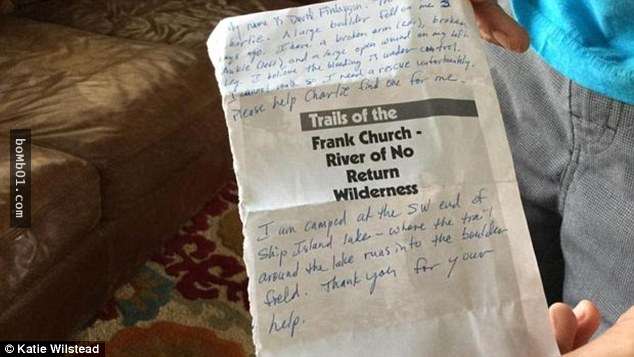 My name is David Finlayson. This
Charlie. A large boulder fell on me 3
days ago. I have a broken arm (left), broken
Ankle (left) and a large open wound on my left
leg. I believe the bleeding is under control.
I cannot walk so I need a rescue unfortunately.
Please help Charlie find one for me.
Trails of the
Frank Church -
River of No
Return
Wilderness
I am camped at the SW end of
Ship Island lake - where the trail
around the lake runs into the boulder
field. Thank you for your
help.
boMb01.com
© Katie Wilstead